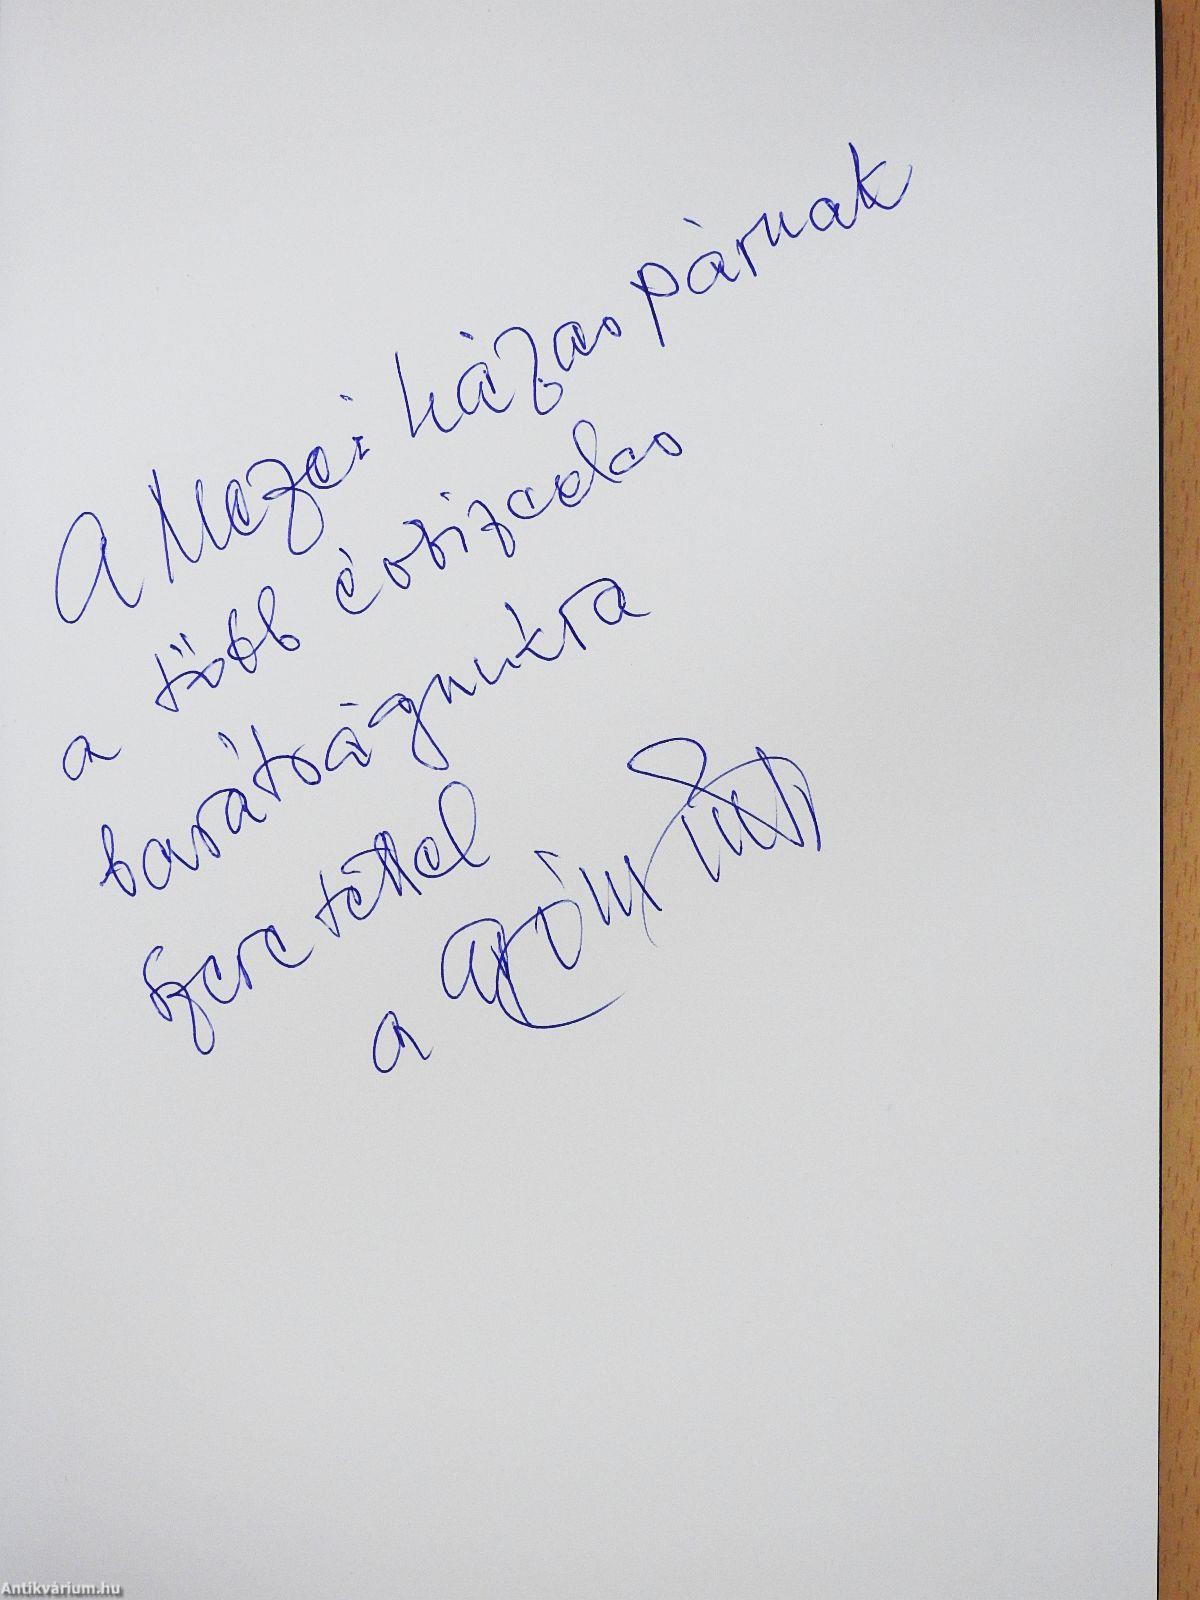 A Mezei házas párnak
a több évtizedes
barátságunkra
szeretettel
a
Antikvárium.hu